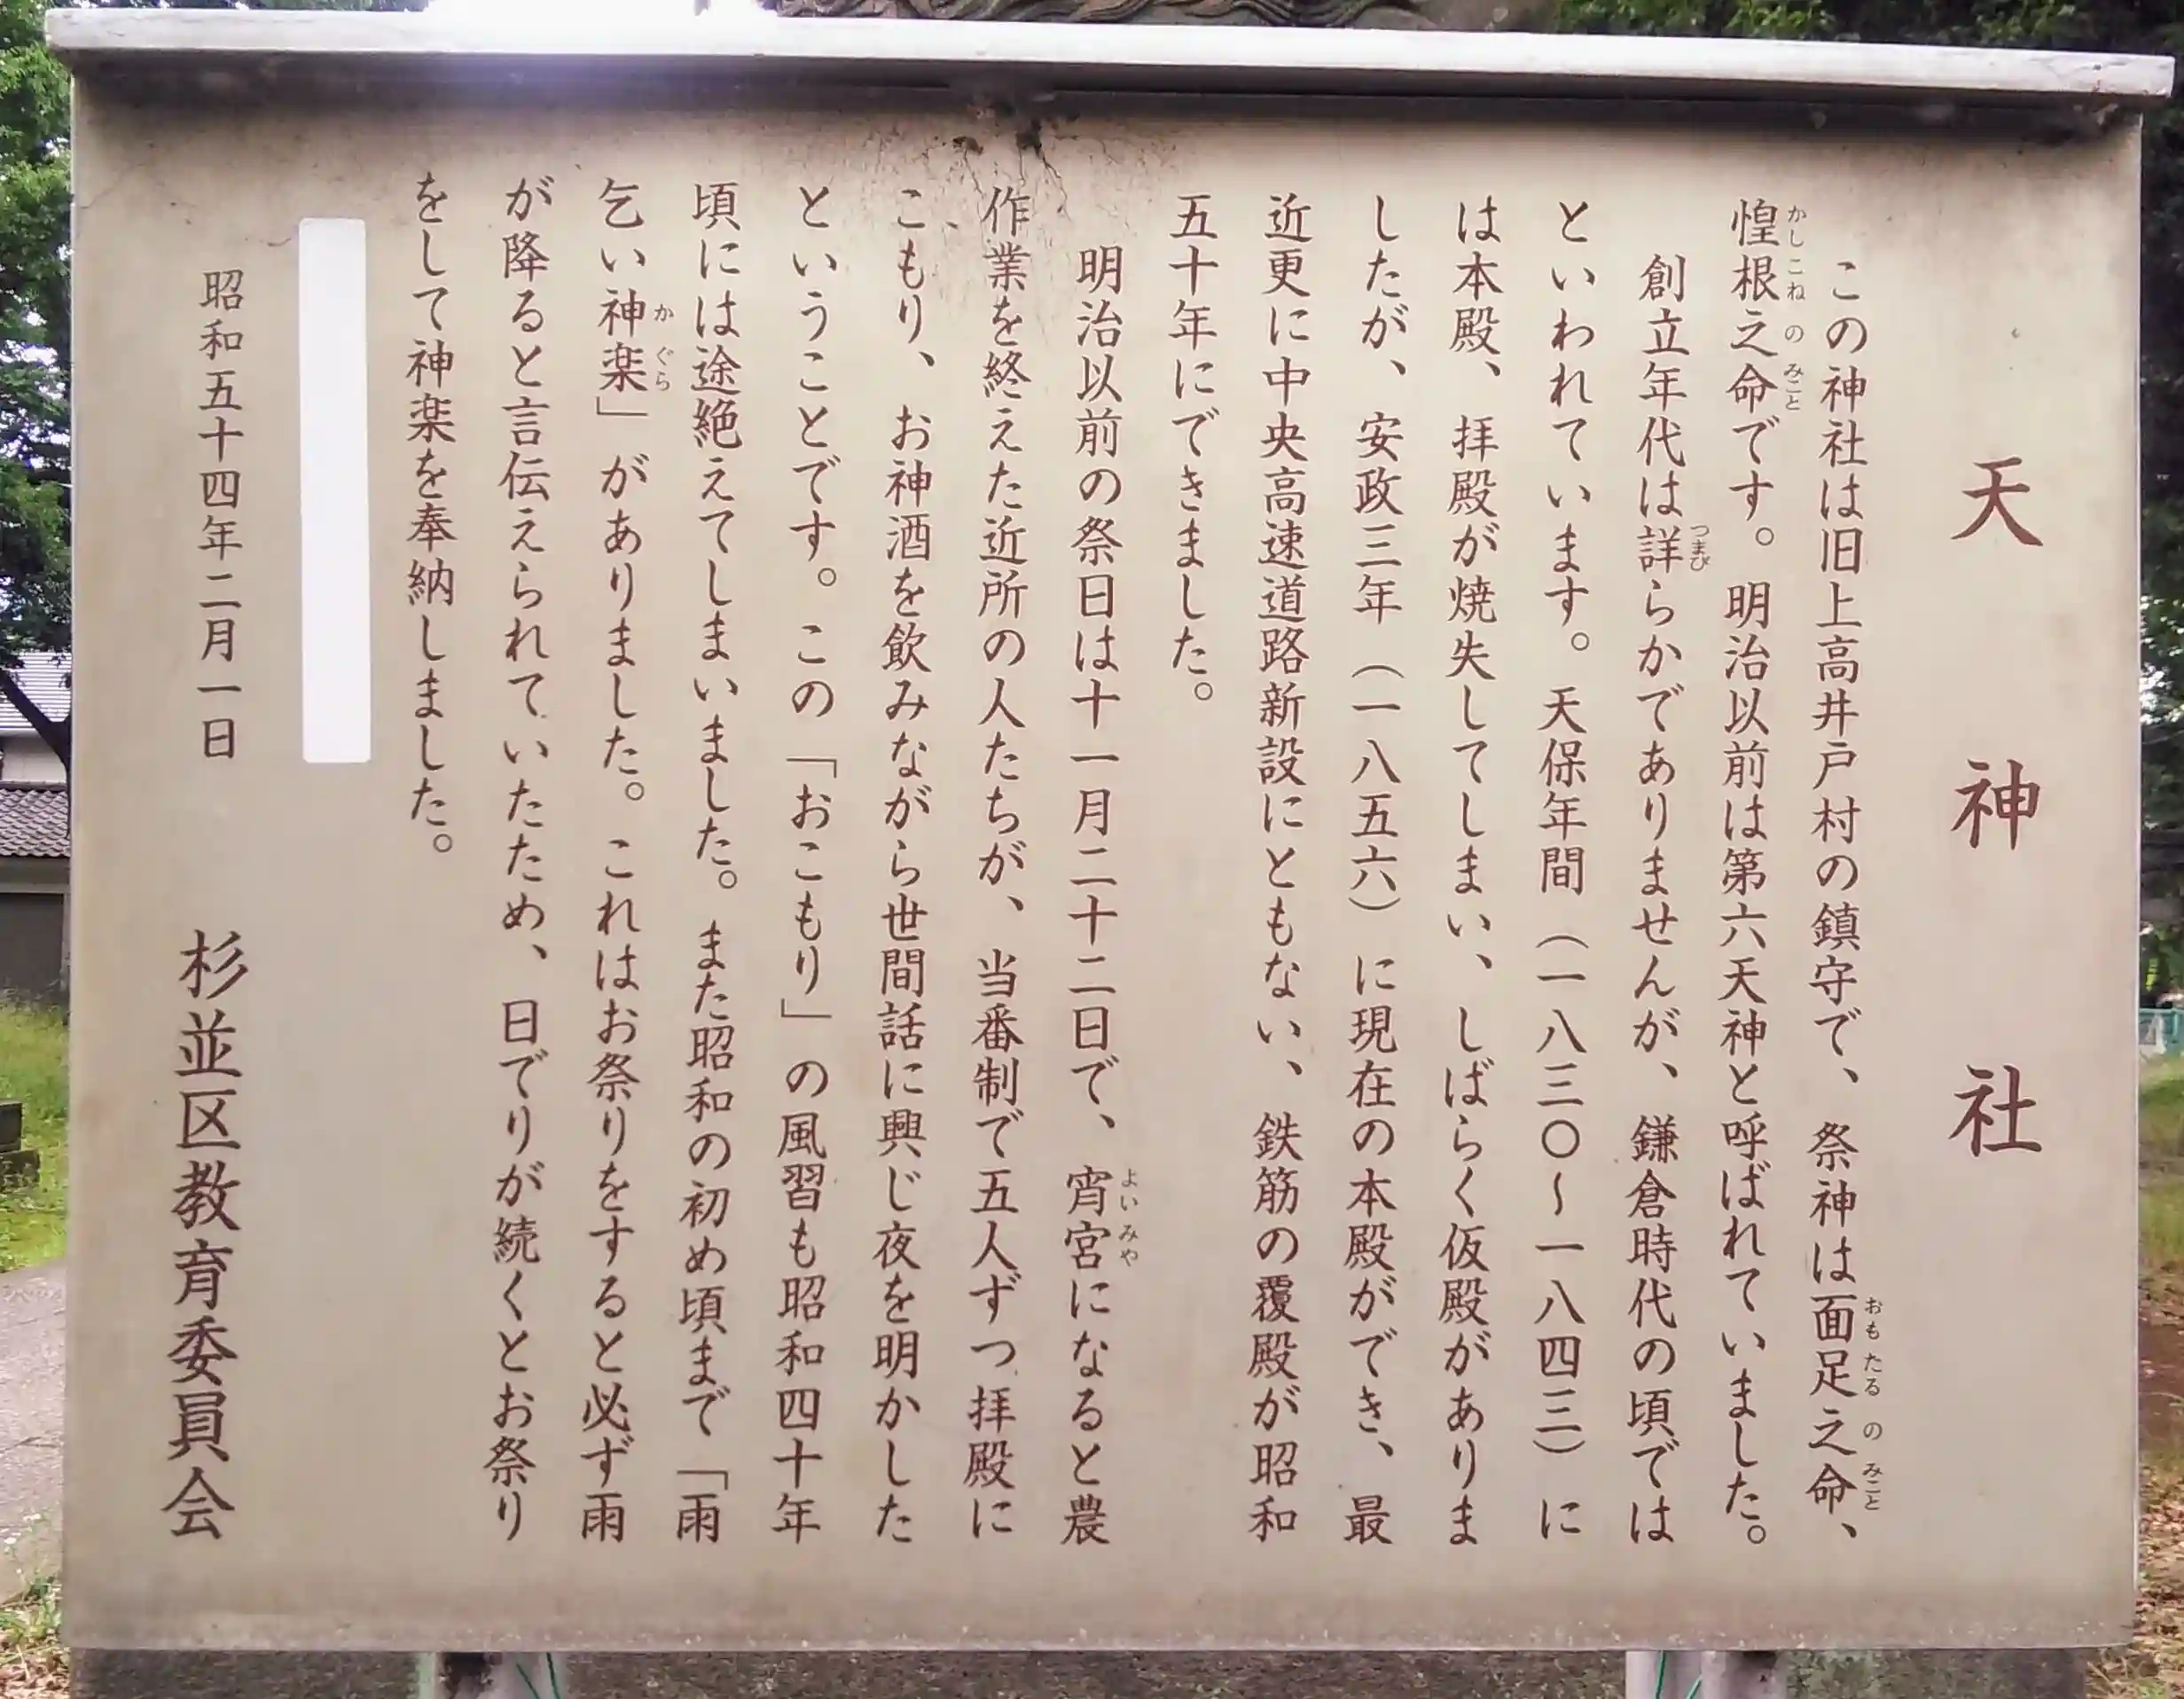 天神社
この神社は旧上高井戸村の鎮守で、祭神は面足之命、
惶根之命です。明治以前は第六天神と呼ばれていました。
創立年代は詳らかでありませんが、鎌倉時代の頃では
といわれています。天保年間(一八三〇〜一八四三)に
は本殿、拝殿が焼失してしまい、しばらく仮殿がありま
したが、安政三年(一八五六)に現在の本殿ができ、最
近更に中央高速道路新設にともない、鉄筋の覆殿が昭和
五十年にできました。
明治以前の祭日は十一月二十二日で、宵宮になると農
作業を終えた近所の人たちが、当番制で五人ずつ拝殿に
こもり、お神酒を飲みながら世間話に興じ夜を明かした
ということです。この「おこもり」の風習も昭和四十年
頃には途絶えてしまいました。また昭和の初め頃まで「雨
乞い神楽」がありました。これはお祭りをすると必ず雨
が降ると言伝えられていたため、日でりが続くとお祭り
をして神楽を奉納しました。
昭和五十四年二月一日 杉並区教育委員会